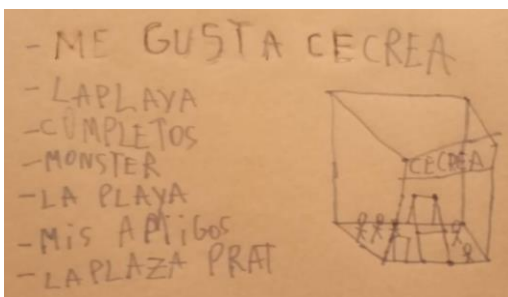 - ME GUSTA CECREA
- LAPLAYA
- COMPLETOS
- MONSTER
- LA PLAYA
- MIS AMIGOS
- LAPLAZA PRAT
CECREA